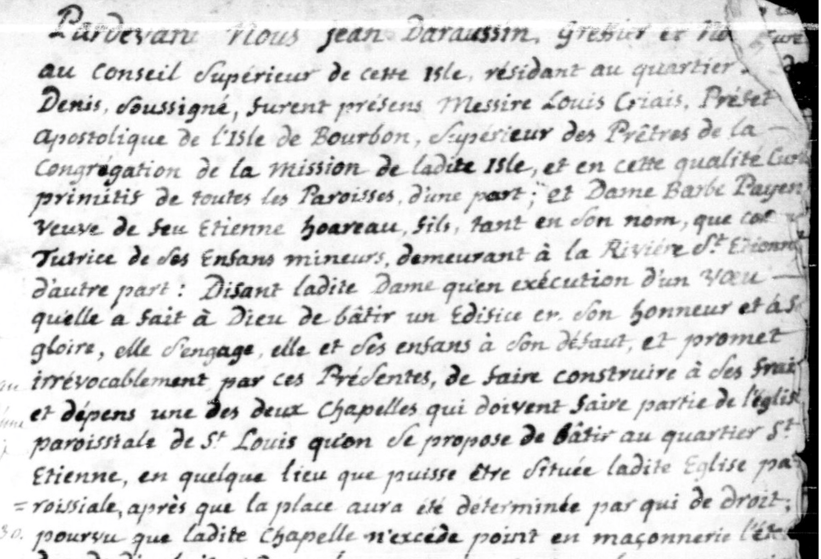 Pardevant Nous jean Daraussin, Greffier et No
au Conseil Supérieur de cette Isle, résidant au quartier
Denis, Soussigné, furent présens Messire Louis Criais, Préfet
Apostolique de l'Isle de Bourbon, Supérieur des Prêtres de la
Congrégation de la Mission de ladite Isle, et en cette qualité Curé
primitif de toutes les Paroisses, d'une part; et Dame Barbe Payen
Veuve de feu Etienne hoareau, fils, tant en Son nom, que co
Tutrice de Ses Enfans mineurs, demeurant à la Riviére St. Etienne
d'autre part: Disant ladite Dame qu'en exécution d'un Vœu
qu'elle a fait à Dieu de bâtir un Edifice en Son honneur et à S
gloire, elle S'engage, elle et Ses enfans à Son défaut, et promet
irrévocablement par ces Présentes, de faire construire à Ses frai
et dépens une des deux Chapelles qui doivent faire partie de l'église
paroissiale de St. Louis qu'on Se propose de bâtir au quartier St.
Etienne, en quelque lieu que puisse être Située ladite Eglise pa
=roissiale, après que la place aura été déterminée par qui de droit;
pourvu que ladite Chapelle n'excéde point en maçonnerie l'ét